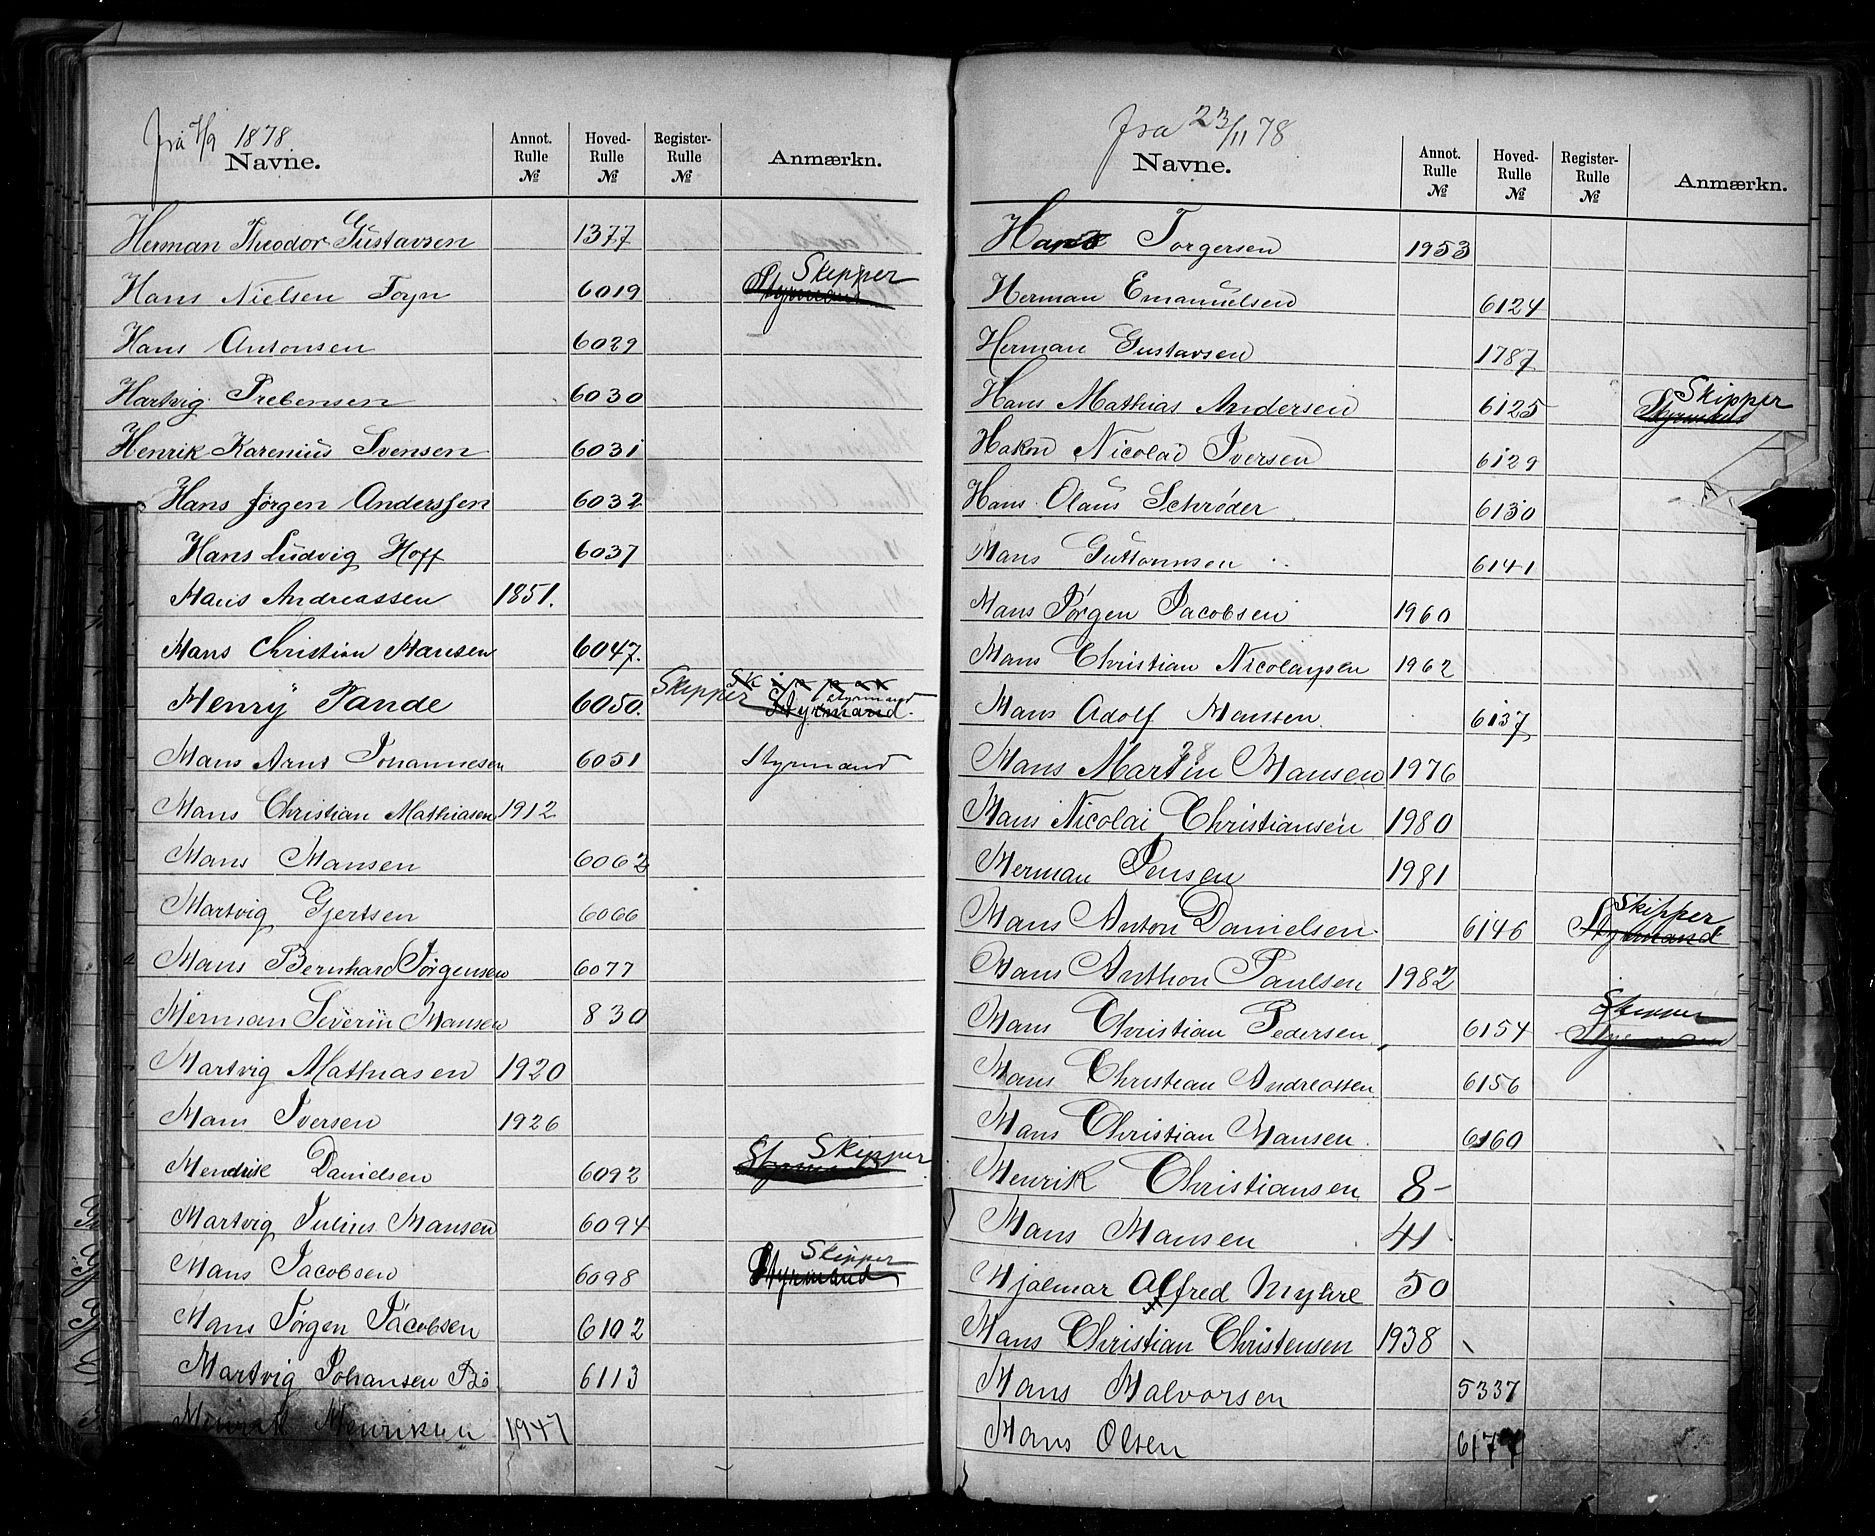 fra 7/9 1878
Navne. Annot. Rulle № Hoved-Rulle № Register-Rulle № Anmærkn.
Herman Theodor Gustavsen 1377
Hans Nielsen Foyn 6019 Styrmand Skipper
Hans Antonsen 6029
Hartvig Prebensen 6030
Henrik Karenius Svensen 6031
Hans Jørgen Anderssen 6032
Hans Ludvig Hoff 6037
Hans Andreassen 1851.
Hans Christian Hansen 6047.
Henry Pande 6050. Skipper Skipper Styrmand Styrmand.
Hans Arnt Johannesen 6051 Styrmand
Hans Christian Mathiasen 1912
Hans Hansen 6062
Hartvig Gjertsen 6066
Hans Bernhard Jørgensen 6077
Herman Severin Hansen 830
Hartvig Mathiasen 1920
Hans Iversen 1926
Hendrik Danielsen 6092 Styrmand Skipper
Hartvig Julius Hansen 6094
Hans Jacobsen 6098 Styrmand Skipper
Hans Jørgen Jacobsen 6102
Hartvig Johansen Bö 6113
Henrik Henriksen 1947
fra 23/11 78
Navne. Annot. Rulle № Hoved-Rulle № Register-Rulle № Anmærkn.
Hans Torgersen 1953
Herman Emanuelsen 6124
Herman Gustavsen 1787
Hans Mathias Andersen 6125 Styrmand Skipper
Hakon Nicolai Iversen 6129
Hans Olaus Schrøder 6130
Hans Guttormsen 6141
Hans Jørgen Jacobsen 1960
Hans Christian Nicolaysen 1962
Hans Adolf Hansen. 6137
Hans Martin Hansen 1976
Hans Nicolai Christiansen 1980
Herman Jensen 1981
Hans Anton Danielsen 6146 Styrmand Skipper
Hans Anthon Paulsen 1982
Hans Christian Pedersen 6154 Styrmand Skipper
Hans Christian Andreassen 6156
Hans Christian Hansen. 6160
Henrik Christiansen 8-
Hans Hansen 41
Hjalmar Alfred Myhre 50
Hans Christian Christensen 1938
Hans Halvorsen 5337
Hans Olsen 6177